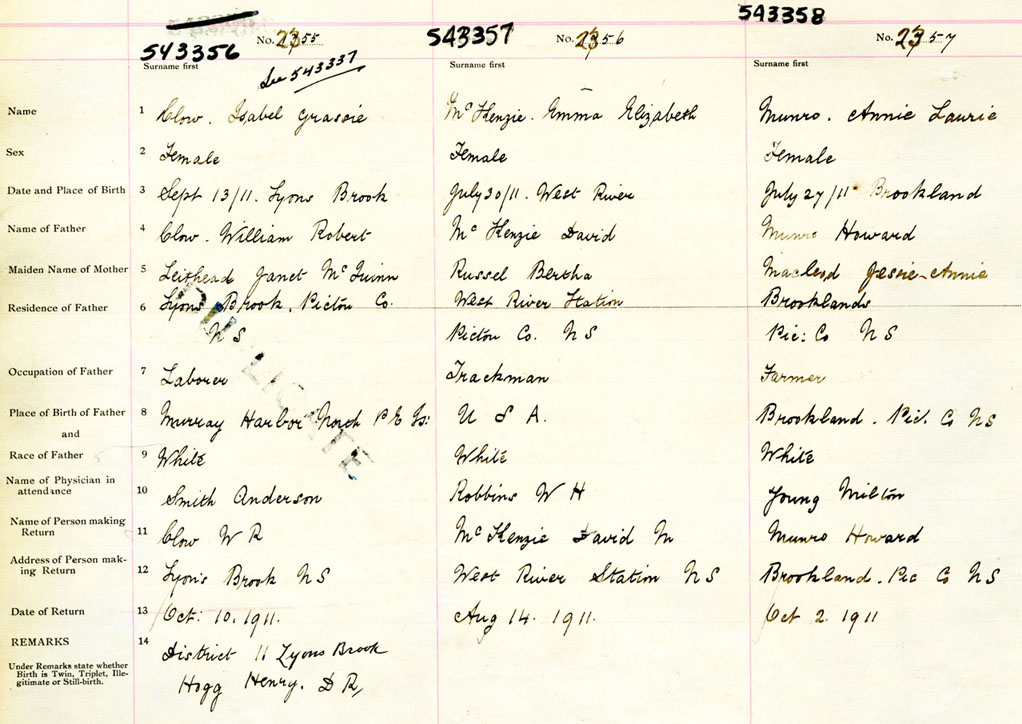 543358
543356 No. 2355 543357 No. 2356 No. 2357
Surname first See 543337 Surname first Surname first
Name 1 Clow. Isabel Grassie McKenzie. Emma Elizabeth Munro. Annie Laurie
Sex 2 Female Female Female
Date and Place of Birth 3 Sept 13/11. Lyons Brook July 30/11. West River July 27/11 Brookland
Name of Father 4 Clow. William Robert McKenzie David Munro Howard
Maiden Name of Mother 5 Leithead Janet McQuinn Russel Bertha Macleod Jessie-Annie
Residence of Father 6 Lyons Brook, Pictou Co. West River Station Brooklands
N S Pictou Co. N S Pic: Co N S
DUPLICATE
Occupation of Father 7 Laborer Trackman Farmer
Place of Birth of Father 8 Murray Harbor North P E Is: U S A. Brookland. Pic. Co N S
and
Race of Father 9 White White White
Name of Physician in
attendance 10 Smith Anderson Robbins W H Young Milton
Name of Person making
Return 11 Clow W R McKenzie David M Munro Howard
Address of Person mak-
ing Return 12 Lyon's Brook N S West River Station N S Brookland. Pic Co N S
Date of Return 13 Oct: 10. 1911. Aug 14. 1911. Oct 2. 1911
REMARKS 14 District 11 Lyons Brook
Under Remarks state whether
Birth is Twin, Triplet, Ille-
gitimate or Still-birth.
Hogg Henry. D R,